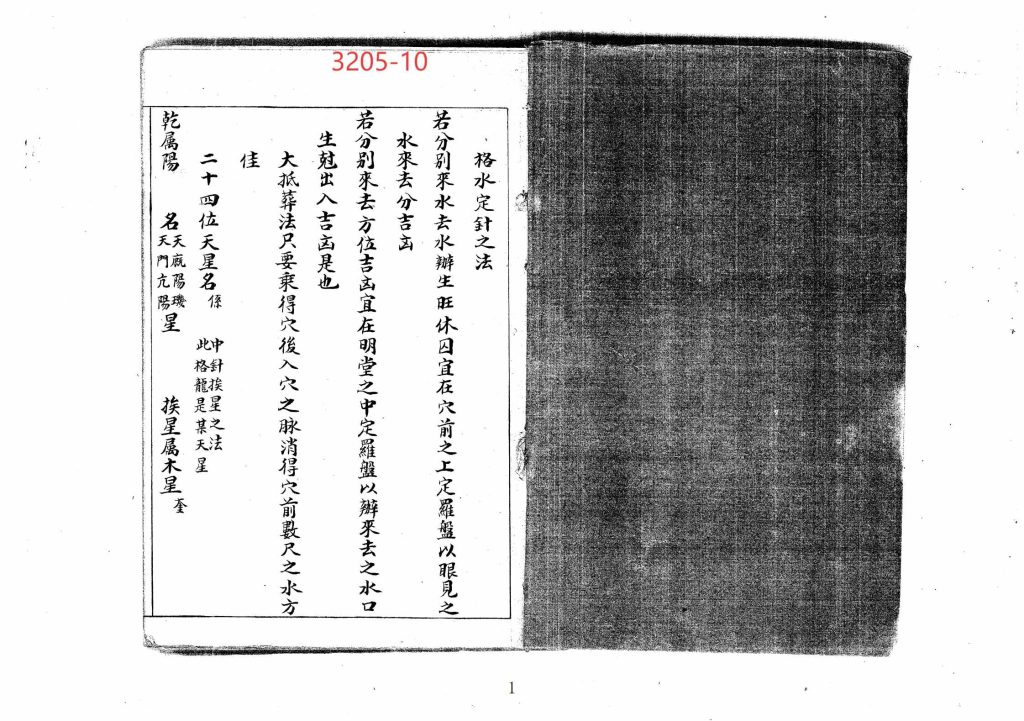 3205-10
格水定針之法
若分別來水去水辦生旺休囚宜在穴前之上定羅盤以眼見之
水來去分吉凶
若分別來去方位吉凶宜在明堂之中定羅盤以辦來去之水口
生尅出入吉凶是也
大抵葬法只要乘得穴後入穴之脉消得穴前數尺之水方
佳
二十四位天星名係
中針挨星之法
此格龍是某天星
乾属陽 名
天廐陽璣
天門亢陽
星 挨星属木星奎
1